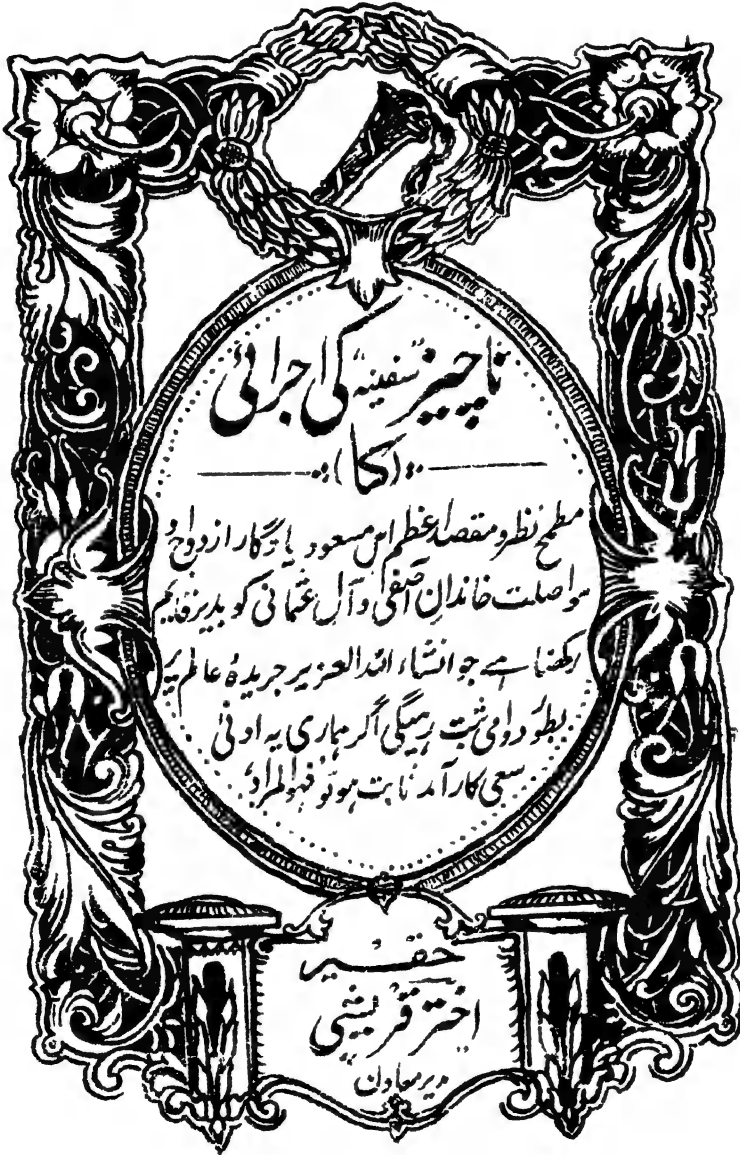 ناچیز "سفینہ" کی اجرائی
(کا)
مطمح نظر و مقصد اعظم اس مسعود یادگار ازدواج و
مواصلت خاندانِ آصفی و آلِ عثمانی کو بدیر قایم
رکھنا ہے جو انشاء اللہ العزیز جریدۂ عالم پر
بطور دوامی ثبت رہیگی اگر ہماری یہ ادنیٰ
سعی کارآمد ثابت ہو تو فہو المراد
حقیر
"اختر قریشی"
مدیر معاون